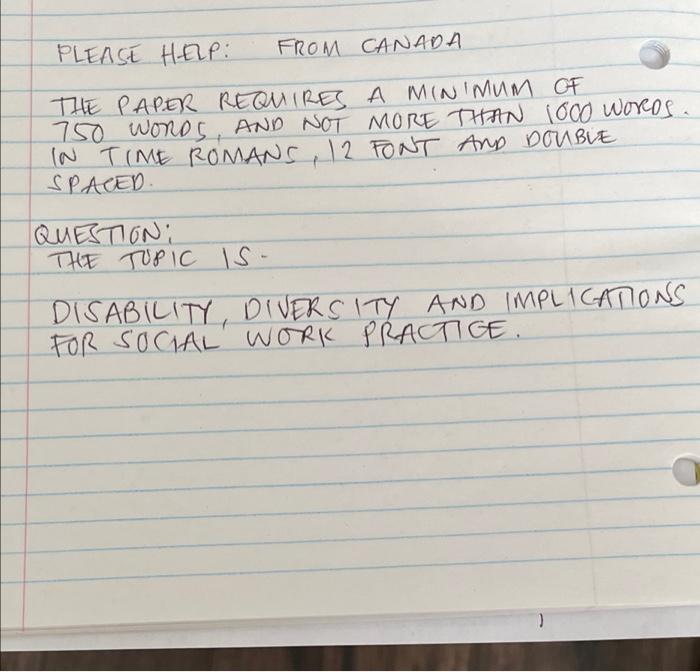 PLEASE HELP: FROM CANADA
THE PAPER REQUIRES A MINIMUM OF
750 WORDS, AND NOT MORE THAN 1000 WORDS.
IN TIME ROMANS, 12 FONT AND DOUBLE
SPACED.
QUESTION:
THE TOPIC IS-
DISABILITY, DIVERSITY AND IMPLICATIONS
FOR SOCIAL WORK PRACTICE.